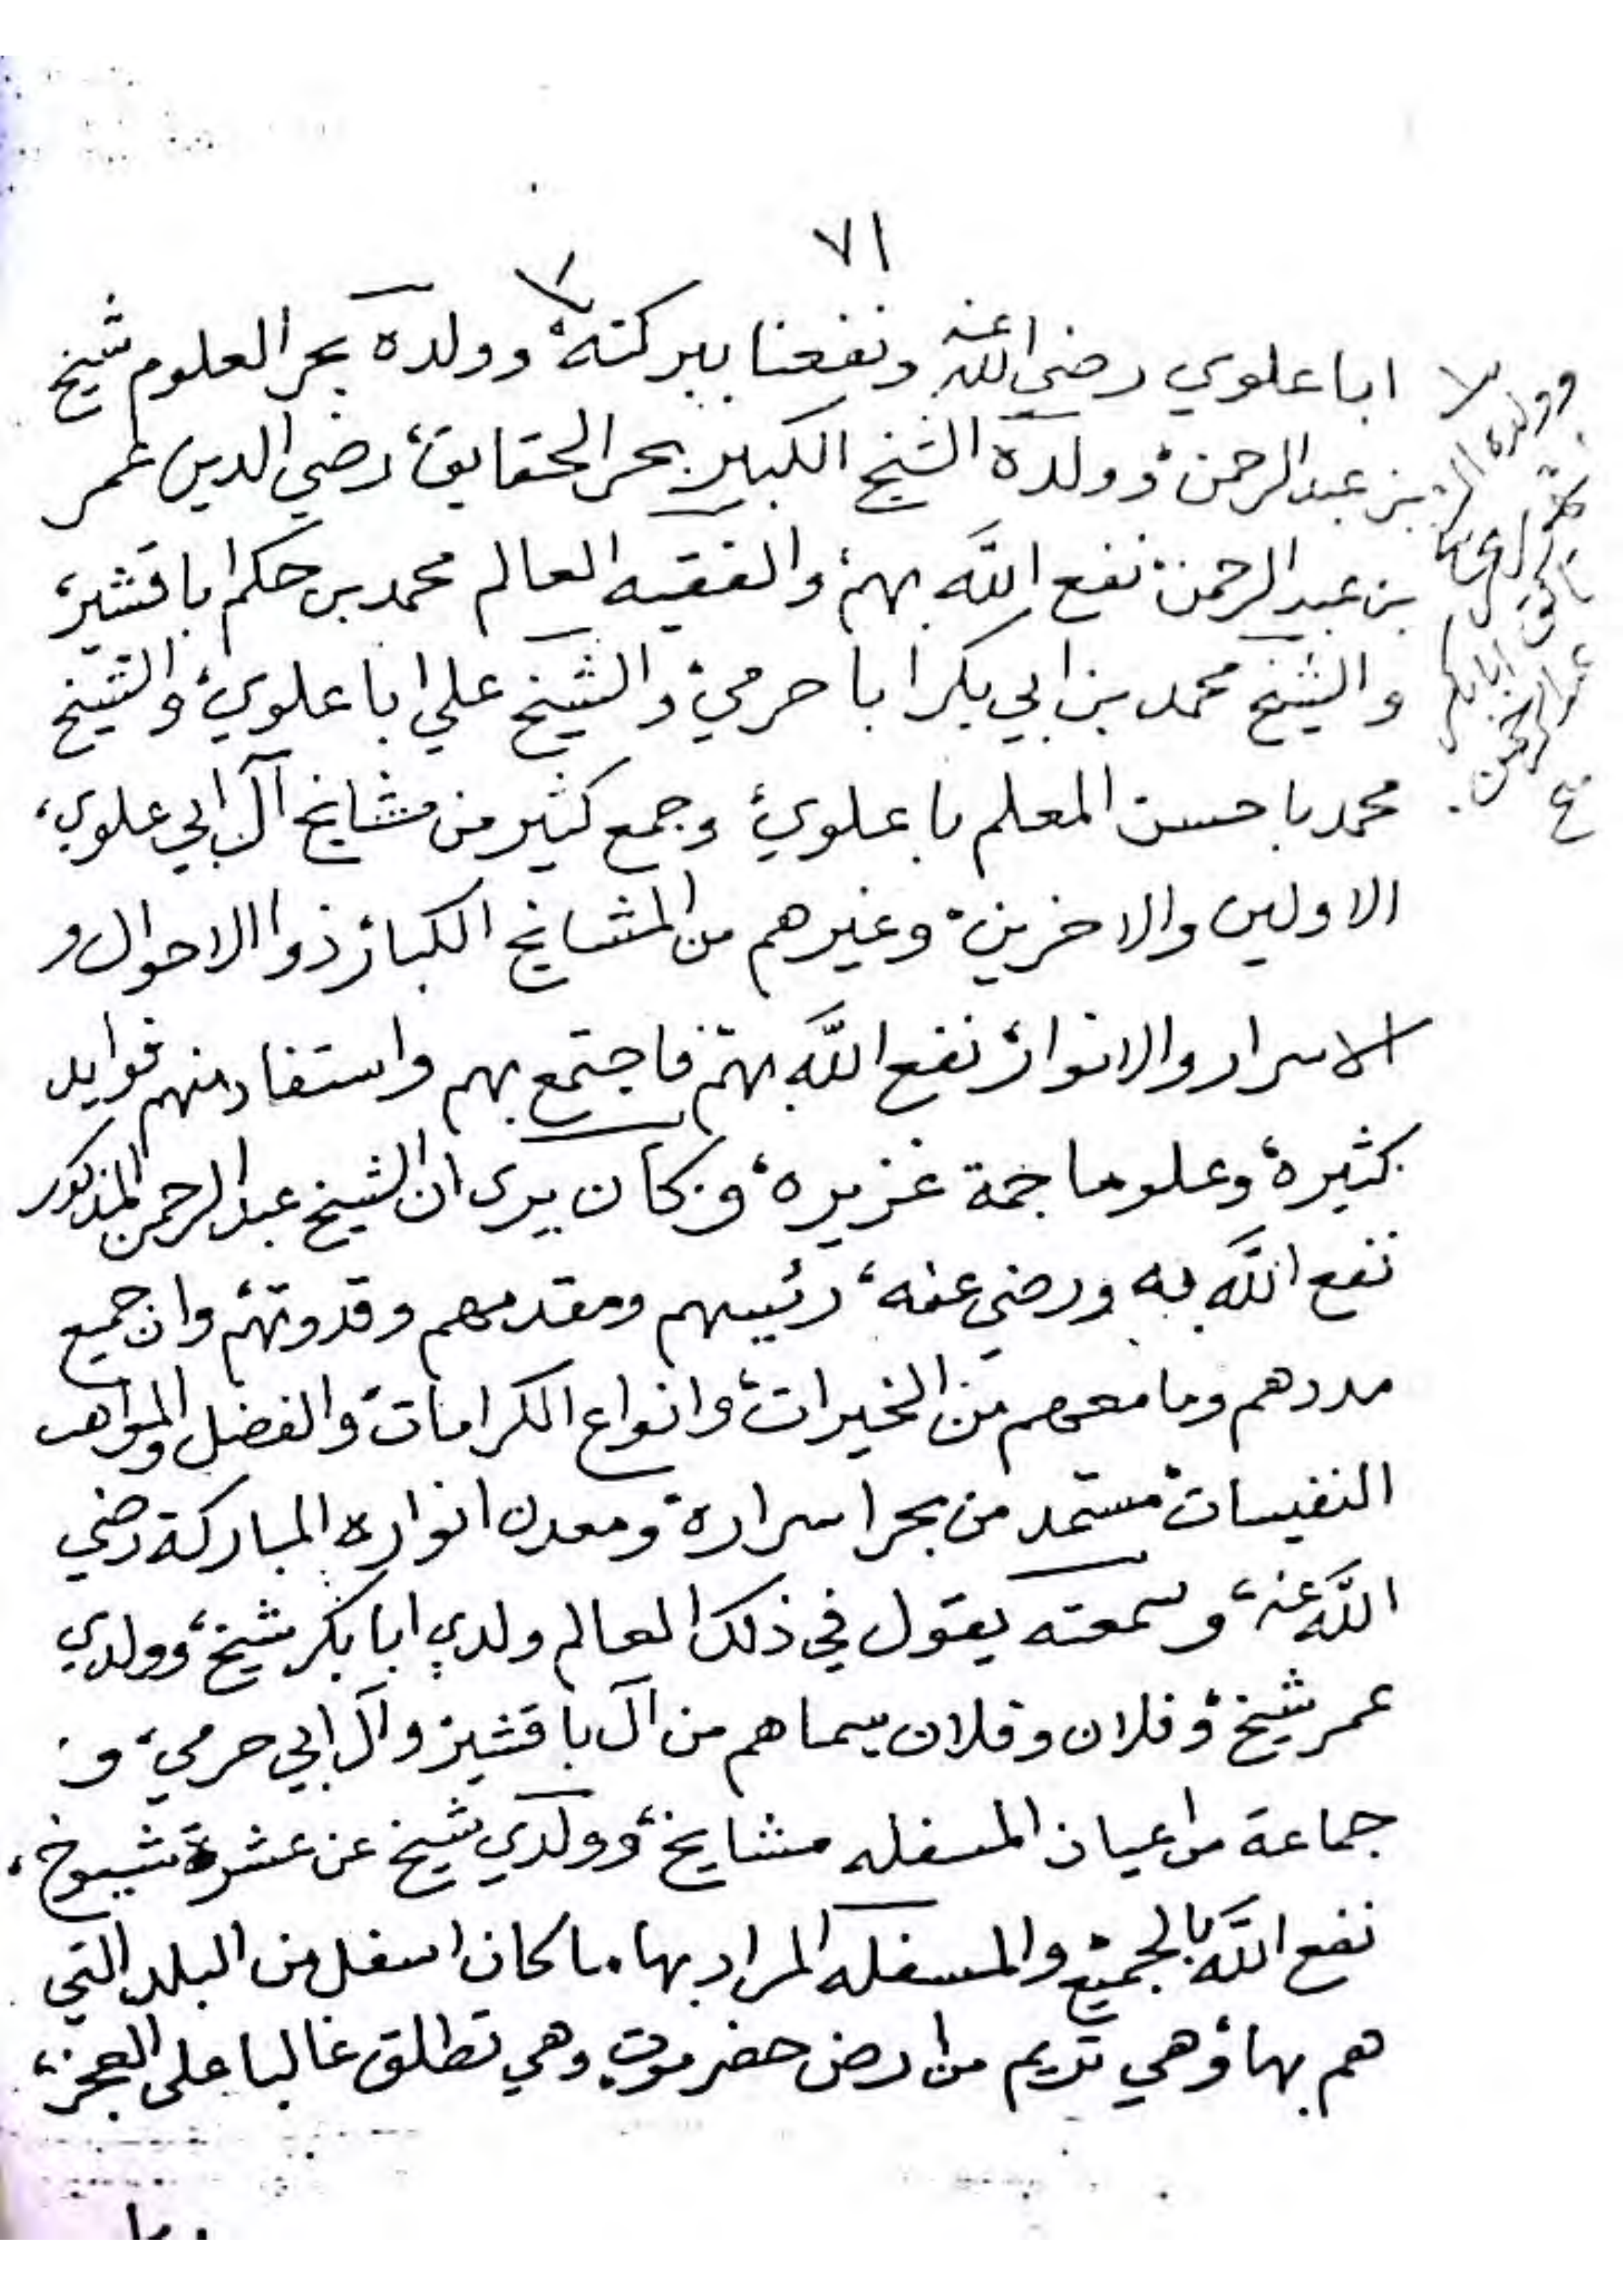 ٧١
ابا علوي رضي الله عنه ونفعنا ببركته، وولده بحر العلوم شيخ
بن عبد الرحمن، وولده الشيخ الكبير بحر الحقايق، رضي الدين عمر
بن عبد الرحمن، نفع الله بهم، والفقيه العالم محمد بن حكم ابا قشير،
والشيخ محمد بن ابي بكر ابا حرمي، والشيخ علي ابا علوي، والشيخ
محمد با حسن المعلم با علوي، وجمع كثير من مشايخ آل ابي علوي،
الاولين والاخرين، وغيرهم من المشايخ الكبار، ذوا الاحوال و
الاسرار والانوار، نفع الله بهم، فاجتمع بهم واستفاد منهم فوايد
كثيرة، وعلوما جمة غزيره، وكان يرى ان الشيخ عبد الرحمن المذكور
نفع الله به ورضي عنه، رئيسهم ومقدمهم وقدوتهم، وان جميع
مددهم وما معهم من الخيرات، وانواع الكرامات، والفضل والمواهب
النفيسات، مستمد من بحر اسراره، ومعدن انواره المباركة رضي
الله عنه، وسمعته يقول في ذلك العالم ولدي ابا بكر شيخ، وولدي
عمر شيخ، وفلان وفلان سماهم من آل با قشير، وآل ابي حرمي، و
جماعة من اعيان المسفله مشايخ، وولدي شيخ عن عشرة شيوخ،
نفع الله بالجميع، والمسفله المراد بها ما كان اسفل من البلد التي
هم بها، وهي تريم من ارض حضرموت، وهي تطلق غالبا على العجز،
وولده
ابا بكر
عبد الرحمن.
صح